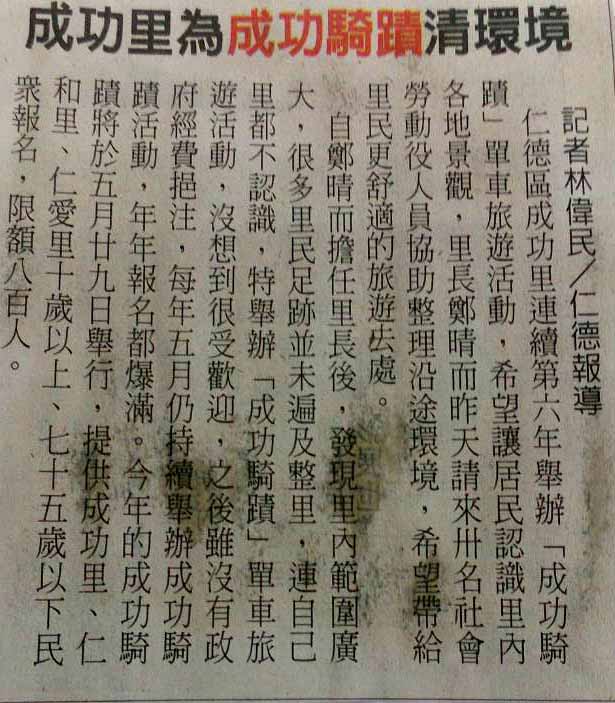 成功里為成功騎蹟清環境
記者林偉民/仁德報導
仁德區成功里連續第六年舉辦「成功騎
蹟」單車旅遊活動，希望讓居民認識里內
各地景觀，里長鄭晴而昨天請來卅名社會
勞動役人員協助整理沿途環境，希望帶給
里民更舒適的旅遊去處。
自鄭晴而擔任里長後，發現里內範圍廣
大，很多里民足跡並未遍及整里，連自己
里都不認識，特舉辦「成功騎蹟」單車旅
遊活動，沒想到很受歡迎，之後雖沒有政
府經費挹注，每年五月仍持續舉辦成功騎
蹟活動，年年報名都爆滿。今年的成功騎
蹟將於五月廿九日舉行，提供成功里、仁
和里、仁愛里十歲以上、七十五歲以下民
眾報名，限額八百人。